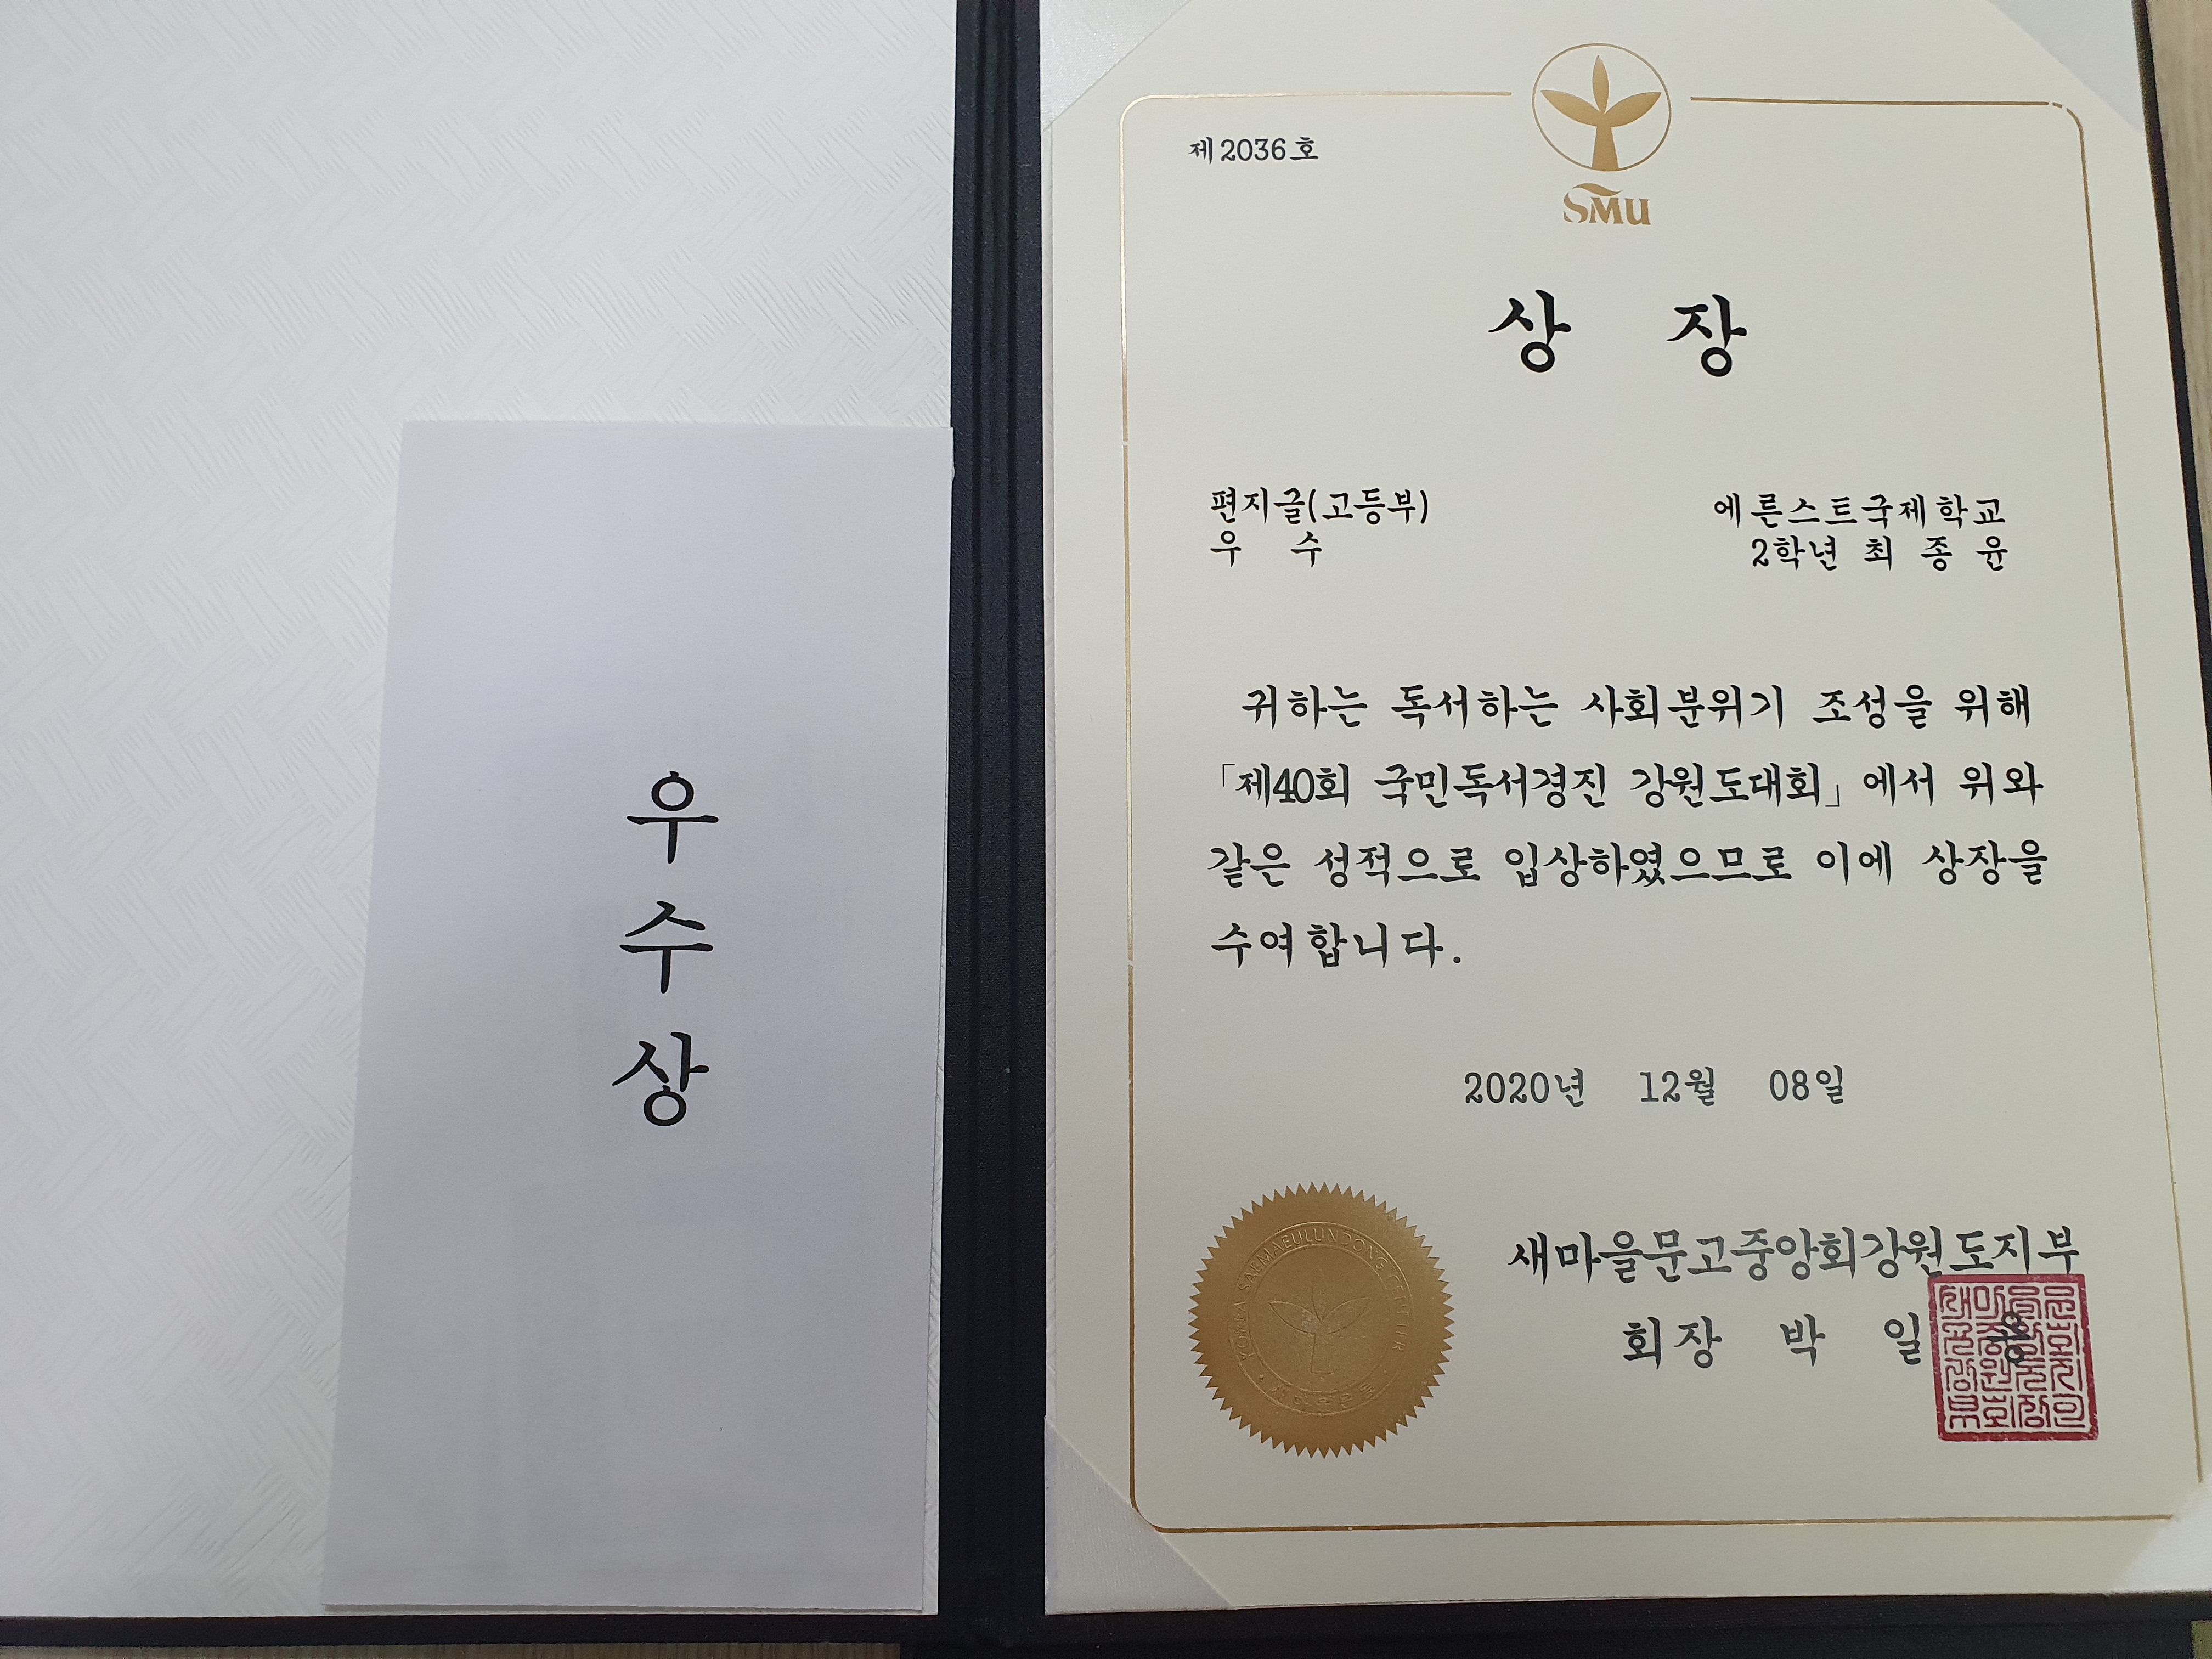 우
수
상
제2036호
SMU
상 장
편지글(고등부)
우 수
에른스트국제학교
2학년 최 종 윤
귀하는 독서하는 사회분위기 조성을 위해
「제40회 국민독서경진 강원도대회」에서 위와
같은 성적으로 입상하였으므로 이에 상장을
수여합니다.
2020년 12월 08일
새마을문고중앙회강원도지부
회장 박 일
KOREA SAEMAEULUNDONG CENTER
새마을운동